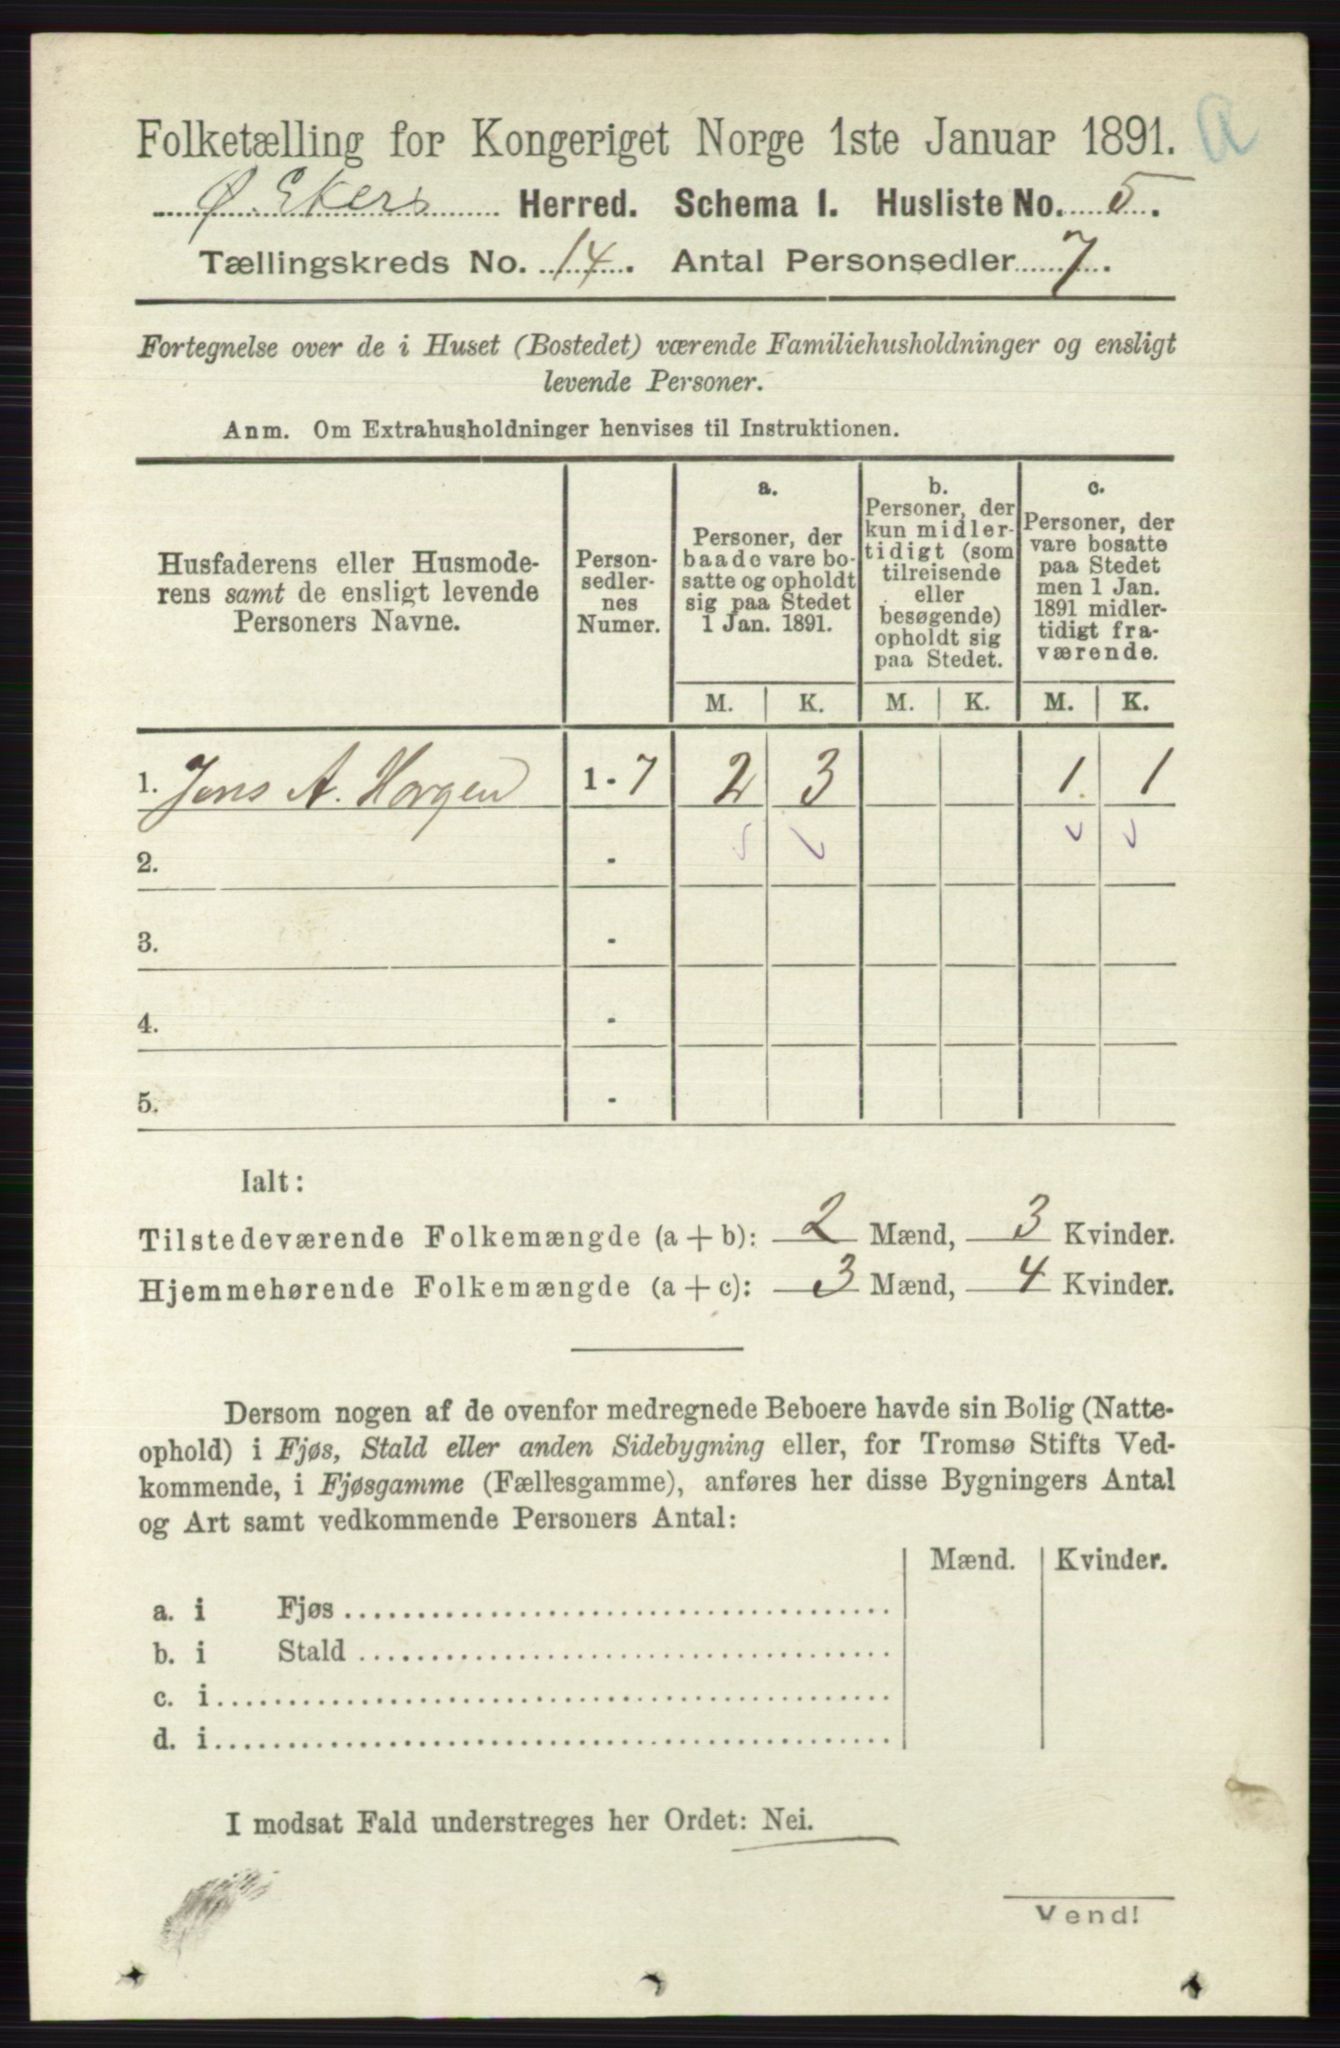 a
Folketælling for Kongeriget Norge 1ste Januar 1891.
Ø. Ekers Herred. Schema 1. Husliste No. 5.
Tællingskreds No. 14. Antal Personsedler 7.
Fortegnelse over de i Huset (Bostedet) værende Familiehusholdninger og ensligt
levende Personer.
Anm. Om Extrahusholdninger henvises til Instruktionen.
Husfaderens eller Husmode-
rens samt de ensligt levende
Personers Navne.
Person-
sedler-
nes
Numer.
a.
Personer, der
baade vare bo-
satte og opholdt
sig paa Stedet
1 Jan. 1891.
b.
Personer, der
kun midler-
tidigt (som
tilreisende
eller
besøgende)
opholdt sig
paa Stedet.
c.
Personer, der
vare bosatte
paa Stedet
men 1 Jan.
1891 midler-
tidigt fra-
værende.
M. K. M. K. M. K.
1. Jens A. Horgen 1-7 2 3 1 1
2. -
3. -
4. -
5. -
Ialt:
Tilstedeværende Folkemængde (a + b): 2 Mænd, 3 Kvinder.
Hjemmehørende Folkemængde (a + c): 3 Mænd, 4 Kvinder.
Dersom nogen af de ovenfor medregnede Beboere havde sin Bolig (Natte-
ophold) i Fjøs, Stald eller anden Sidebygning eller, for Tromsø Stifts Ved-
kommende, i Fjøsgamme (Fællesgamme), anføres her disse Bygningers Antal
og Art samt vedkommende Personers Antal:
Mænd. Kvinder.
a. i Fjøs
b. i Stald
c. i
d. i
I modsat Fald understreges her Ordet: Nei.
Vend!